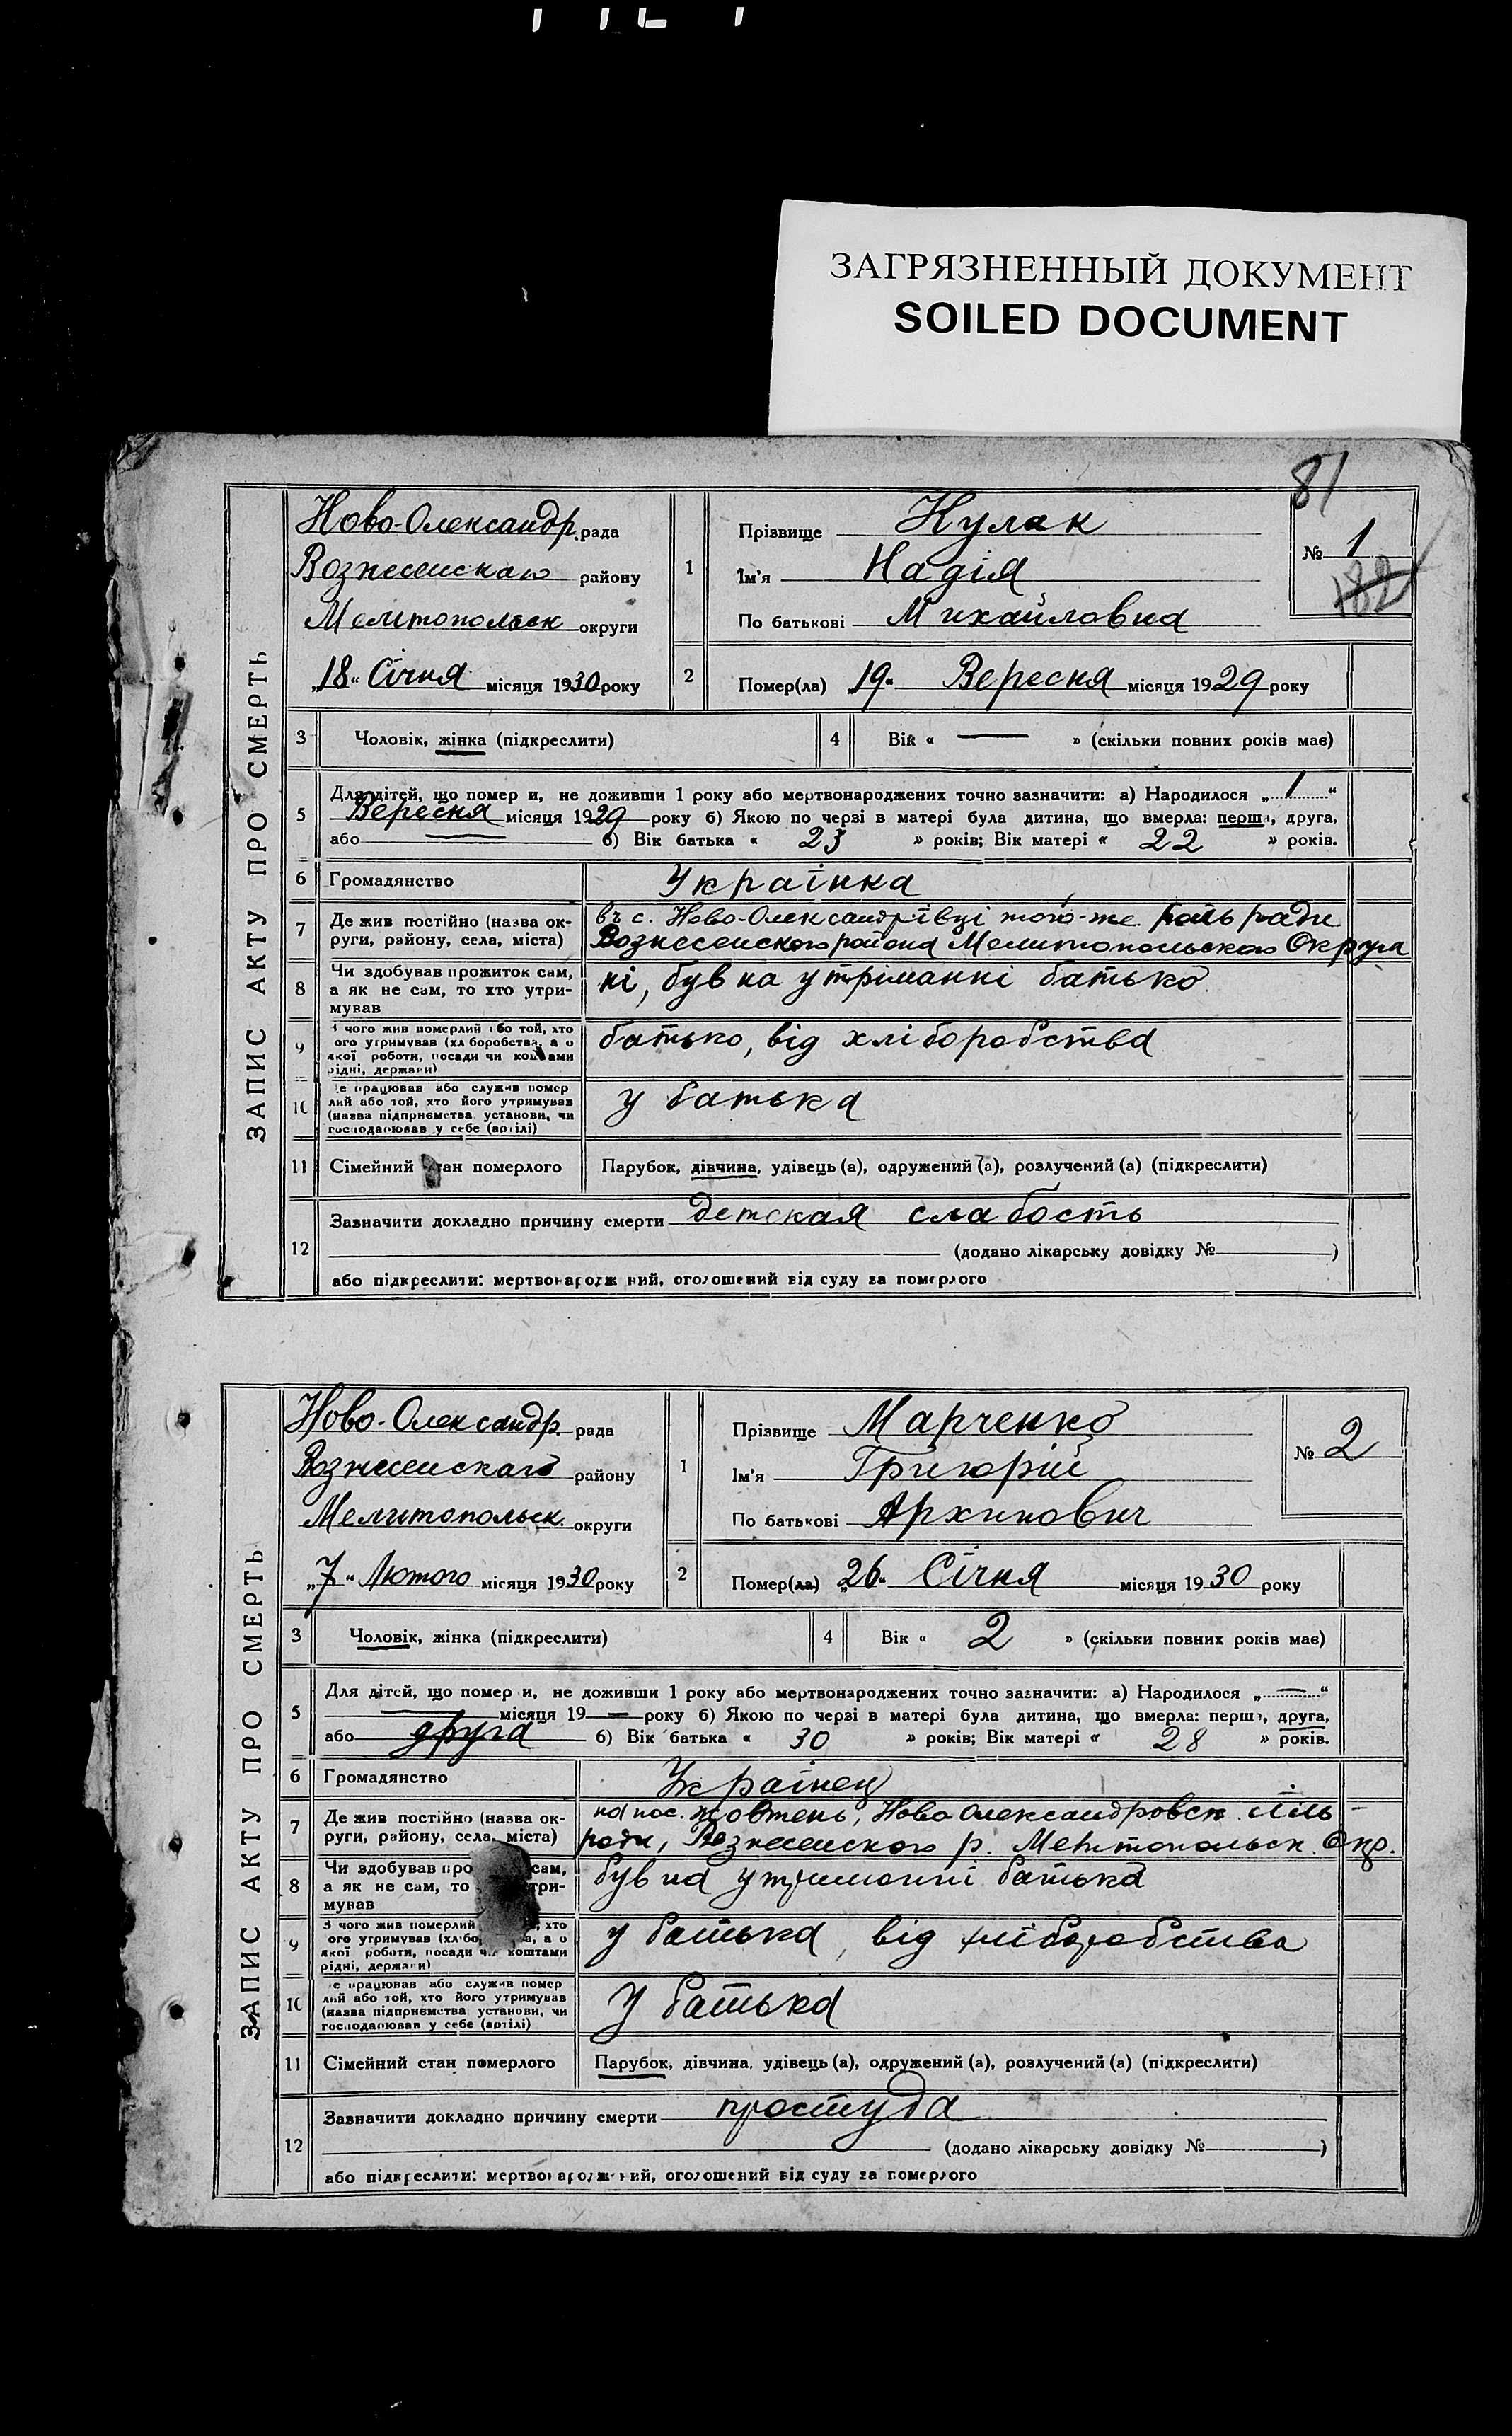 ЗАГРЯЗНЕННЫЙ ДОКУМЕНТ
SOILED DOCUMENT
81
ЗАПИС АКТУ ПРО СМЕРТЬ
Ново-Олександр. рада
Вознесенскаго району
Мелитопольск округи
„18“ Січня місяця 1930 року
1
Прізвище Кулак
Ім'я Надія
По батькові Михайловна
№ 1
182
2
Помер(ла) „19“ Вересня місяця 1929 року
3 Чоловік, жінка (підкреслити)
4 Вік « — » (скільки повних років має)
5 Для дітей, що помер и, не доживши 1 року або мертвонароджених точно зазначити: а) Народилося „1“
Вересня місяця 1929 року б) Якою по черзі в матері була дитина, що вмерла: перша, друга,
або — б) Вік батька « 23 » років; Вік матері « 22 » років.
6 Громадянство Українка
7 Де жив постійно (назва ок-
руги, району, села, міста)
въ с. Ново-Олександрівці того-же ради
Вознесенского района Мелитопольскаго Округа
8 Чи здобував прожиток сам,
а як не сам, то хто утри-
мував
ні, був на утріманні батько
9 З чого жив померлий або той, хто
ого утримував (хл боробства, а о
якої роботи, посади чи коштами
рідні, держави)
батько, від хліборобства
10 е працював або служив помер
лий або той, хто його утримував
(назва підприємства установи, чи
господарював у себе (артілі)
у батька
11 Сімейний стан померлого Парубок, дівчина, удівець (а), одружений (а), розлучений (а) (підкреслити)
12 Зазначити докладно причину смерти детская слабость
(додано лікарську довідку № )
або підкреслити: мертвонародж ний, оголошений від суду за померлого
ЗАПИС АКТУ ПРО СМЕРТЬ
Ново-Олександр. рада
Вознесенскаго району
Мелитопольск. округи
„7“ Лютого місяця 1930 року
1
Прізвище Марченко
Ім'я Григорій
По батькові Архипович
№ 2
2
Помер(ла) „26“ Січня місяця 1930 року
3 Чоловік, жінка (підкреслити)
4 Вік « 2 » (скільки повних років має)
5 Для дітей, що помер и, не доживши 1 року або мертвонароджених точно зазначити: а) Народилося „—“
— місяця 19 — року б) Якою по черзі в матері була дитина, що вмерла: перша, друга,
або друга б) Вік батька « 30 » років; Вік матері « 28 » років.
6 Громадянство Українец
7 Де жив постійно (назва ок-
руги, району, села, міста)
на пос. Жовтень, Ново Олександровск. сіль-
ради, Вознесенского р. Мелитопольск. Окр.
8 Чи здобував про сам,
а як не сам, то утри-
мував
був на утриманні батька
9 З чого жив померлий , хто
ого утримував (хлібо а, а о
якої роботи, посади чи коштами
рідні, держави)
у батька, від хліборобства
10 е працював або служив помер
лий або той, хто його утримував
(назва підприємства установи, чи
господарював у себе (артілі)
у батька
11 Сімейний стан померлого Парубок, дівчина, удівець (а), одружений (а), розлучений (а) (підкреслити)
12 Зазначити докладно причину смерти простуда
(додано лікарську довідку № )
або підкреслити: мертвонародж ний, оголошений від суду за померлого